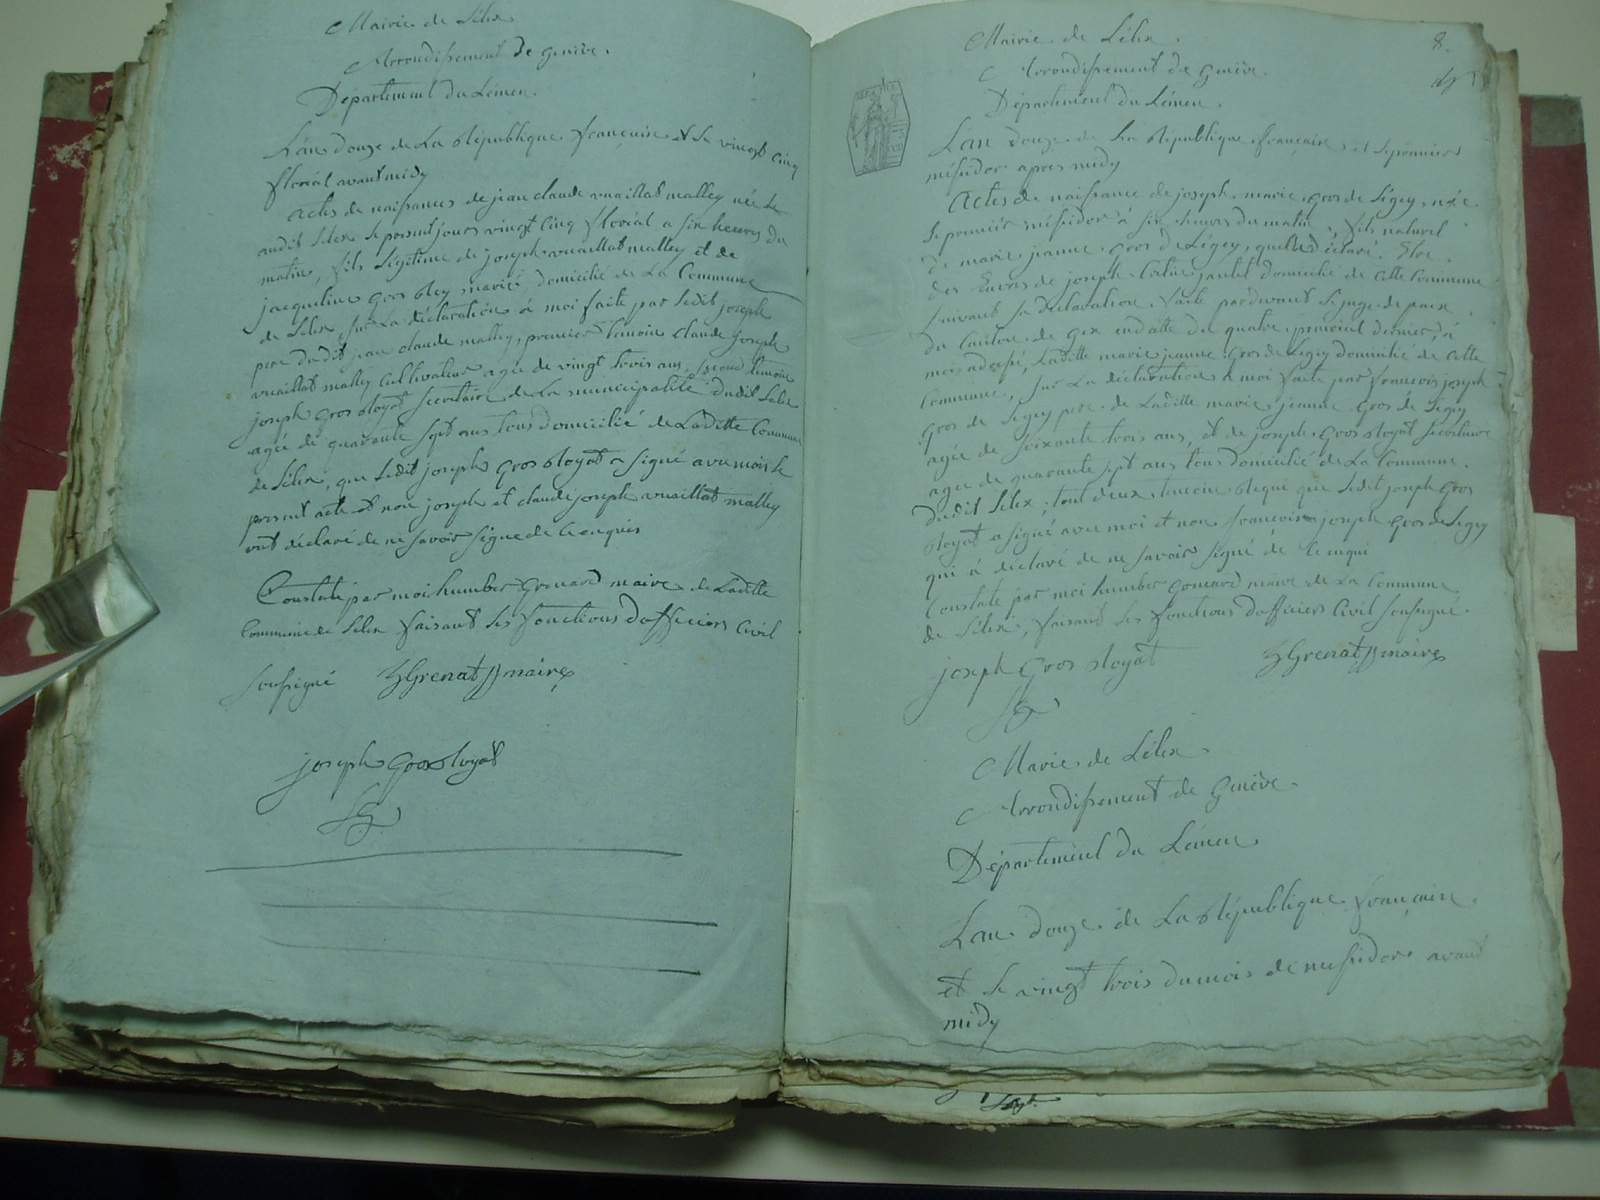 Mairie de Lélex
Arrondissement de Genève.
Département du Léman.
L'an douze de La République française et le vingt cinq
floréal avant midy
Actes de naissances de jean claude vuaillat malley née le
audit Lelex le present jours vingt cinq floréal a six heures du
matin, fils légitime de joseph vuaillat malley et de
jacqueline Gros mariés domicilié de La Commune
de Lélex sur La déclaration à moi faite par ledit joseph
pere dudit jean claude malley, premier temoin Claude joseph
vuaillat malley Cultivateur agée de vingt trois ans, second temoin
joseph Gros Royat Secretaire de La municipalité dudit Lelex
agée de quarante sept ans tous domicilié de Laditte Commune
de Lélex, que ledit joseph Gros Royat a signé avec moi le
present acte et non joseph et claude joseph vuaillat malley
ont déclaré de ne savoir signe de ce enquis
Constaté par moi humber Grenard maire de Laditte
Commune de Lelex faisant les fonctions d'officiers Civil
soussigné hGrenat maire
joseph Gros Royat
8.
Mairie de Lélex.
Arrondissement de Genève.
Département du Léman.
L'an douze de La République française et le premier
messidor apres midy
Actes de naissance de joseph marie Gros de Légey, née
le premier messidor à six heures du matin, fils naturel
de marie jeanne Gros de Légey, quelle a déclaré Etre
des Euvres de joseph domicilié de cette Commune
suivant sa déclaration faite pardevant le juge de paix
du Canton de Gex en datte du quatre prairial dernier, à
moi adressé, Laditte marie jeanne Gros de Légey domicilié de cette
Commune, sur La déclaration à moi faite par francois joseph
Gros de Légey pere de Laditte marie jeanne Gros de Légey
agée de soixante trois ans, et de joseph Gros Royat Secretaire
agée de quarante sept ans tous domicilié de La Commune
dudit Lelex, tout deux temoins que ledit joseph Gros
Royat a signé avec moi et non francois joseph Gros de Légey
qui à déclaré de ne savoir signé de ce enqui
Constaté par moi humber Grenard maire de La Commune
de Lélex, faisant les fonctions d'officiers Civil soussigné.
joseph Gros Royat hGrenat maire
Mairie de Lélex.
Arrondissement de Genève.
Département du Léman.
L'an douze de La République française
et le vingt trois du mois de messidor avant
midy